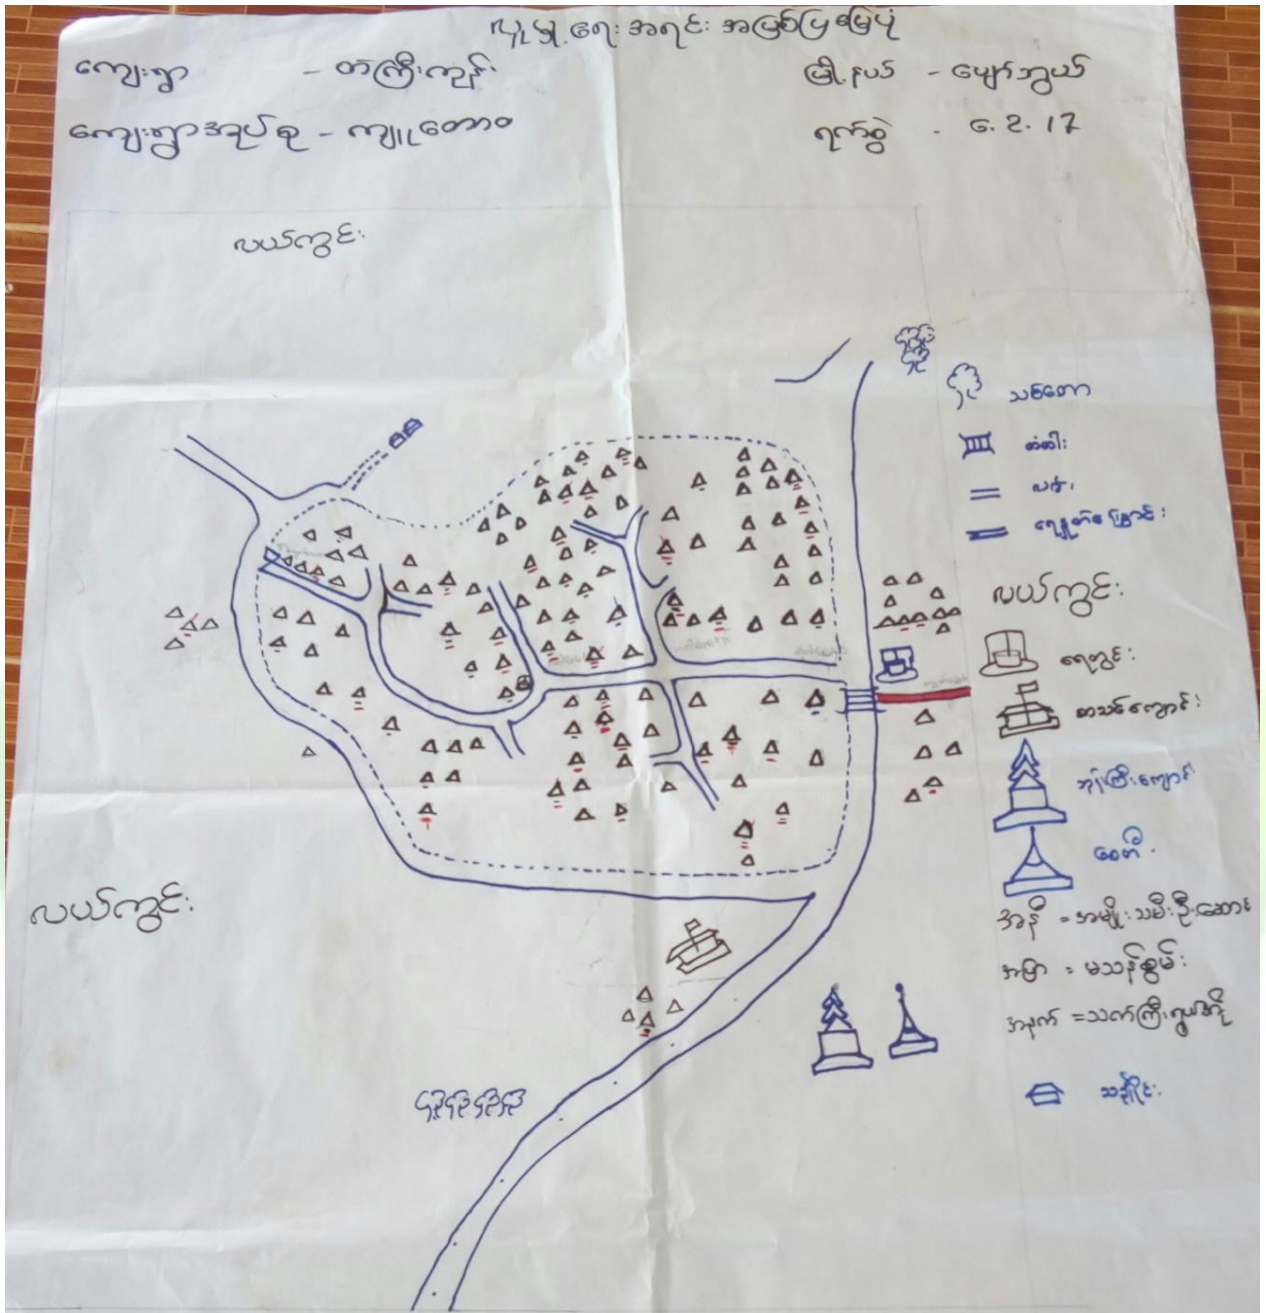 လူမှုရေး အရင်း အမြစ်ပြမြေပုံ
ကျေးရွာ - တံကြီးကုန်း
မြို့နယ် - ပျော်ဘွယ်
ကျေးရွာအုပ်စု - ကျူတော
ရက်စွဲ - 6. 2. 17
လယ်ကွင်း
သစ်တော
တံတါး
လမ်း
ရေနှုတ်မြောင်း
လယ်ကွင်း
ရေတွင်း
စာသင်ကျောင်း
ဘုံးကြီးကျောင်း
စေတီ
လယ်ကွင်း
အနီ = အမျိုးသမီးဦးဆောင်
အပြာ = မသန်စွမ်း
အနက် = သက်ကြီးရွယ်အို
သင်္ချိုင်း